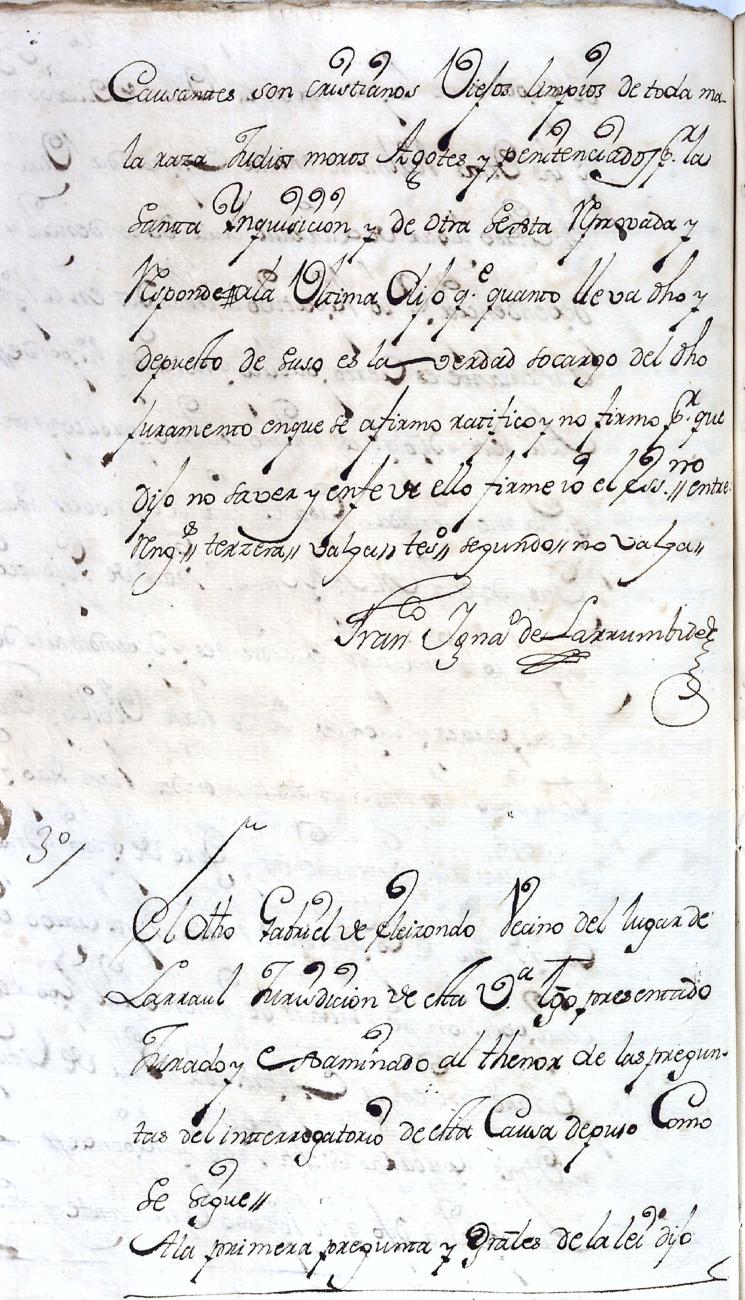 Causantes son cristianos Viejos limpios de toda ma-
la raza Judios moros Agotes y penitenciados pr. la
Santta Ynquisicion y de otra Sectta Reprovada y
Responde
ala Ultima Dijo q.e quanto lleva dho y
depuesto de suso es la verdad socargo del dho
juramento enque se afirmo ratifico y no firmo pr. que
dijo no saver y enfe de ello firme io el Ess.no // entre
Rengs // terzera // valga // tesº // segundo // no valga //
Franco Ignaº de Larrumbide
3º /
El dho Gabriel de Vecino del lugar de
Larraul Jurisdicion de esta V.a tgo presentado
Jurado y esaminado al thenor de las pregun-
tas del interrogatorio de esta Causa depuso Como
se sigue //
Ala primera pregunta y Grales de la lei dijo